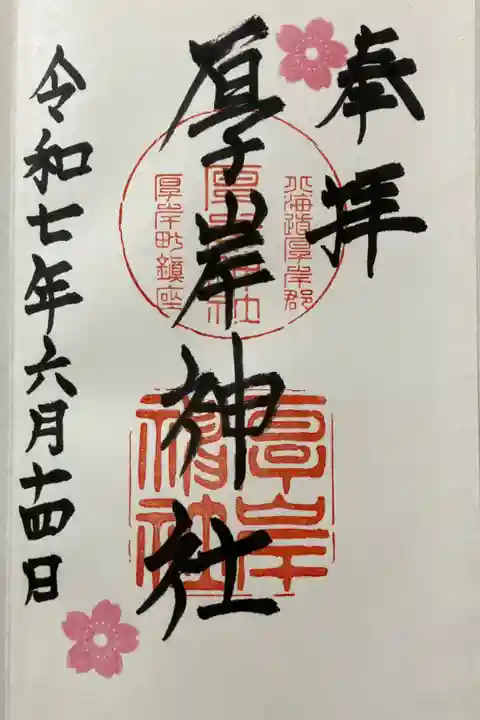 奉拝
北海道厚岸郡
厚岸神社
厚岸町鎮座
厚岸神社
厚岸
神社
令和七年六月十四日